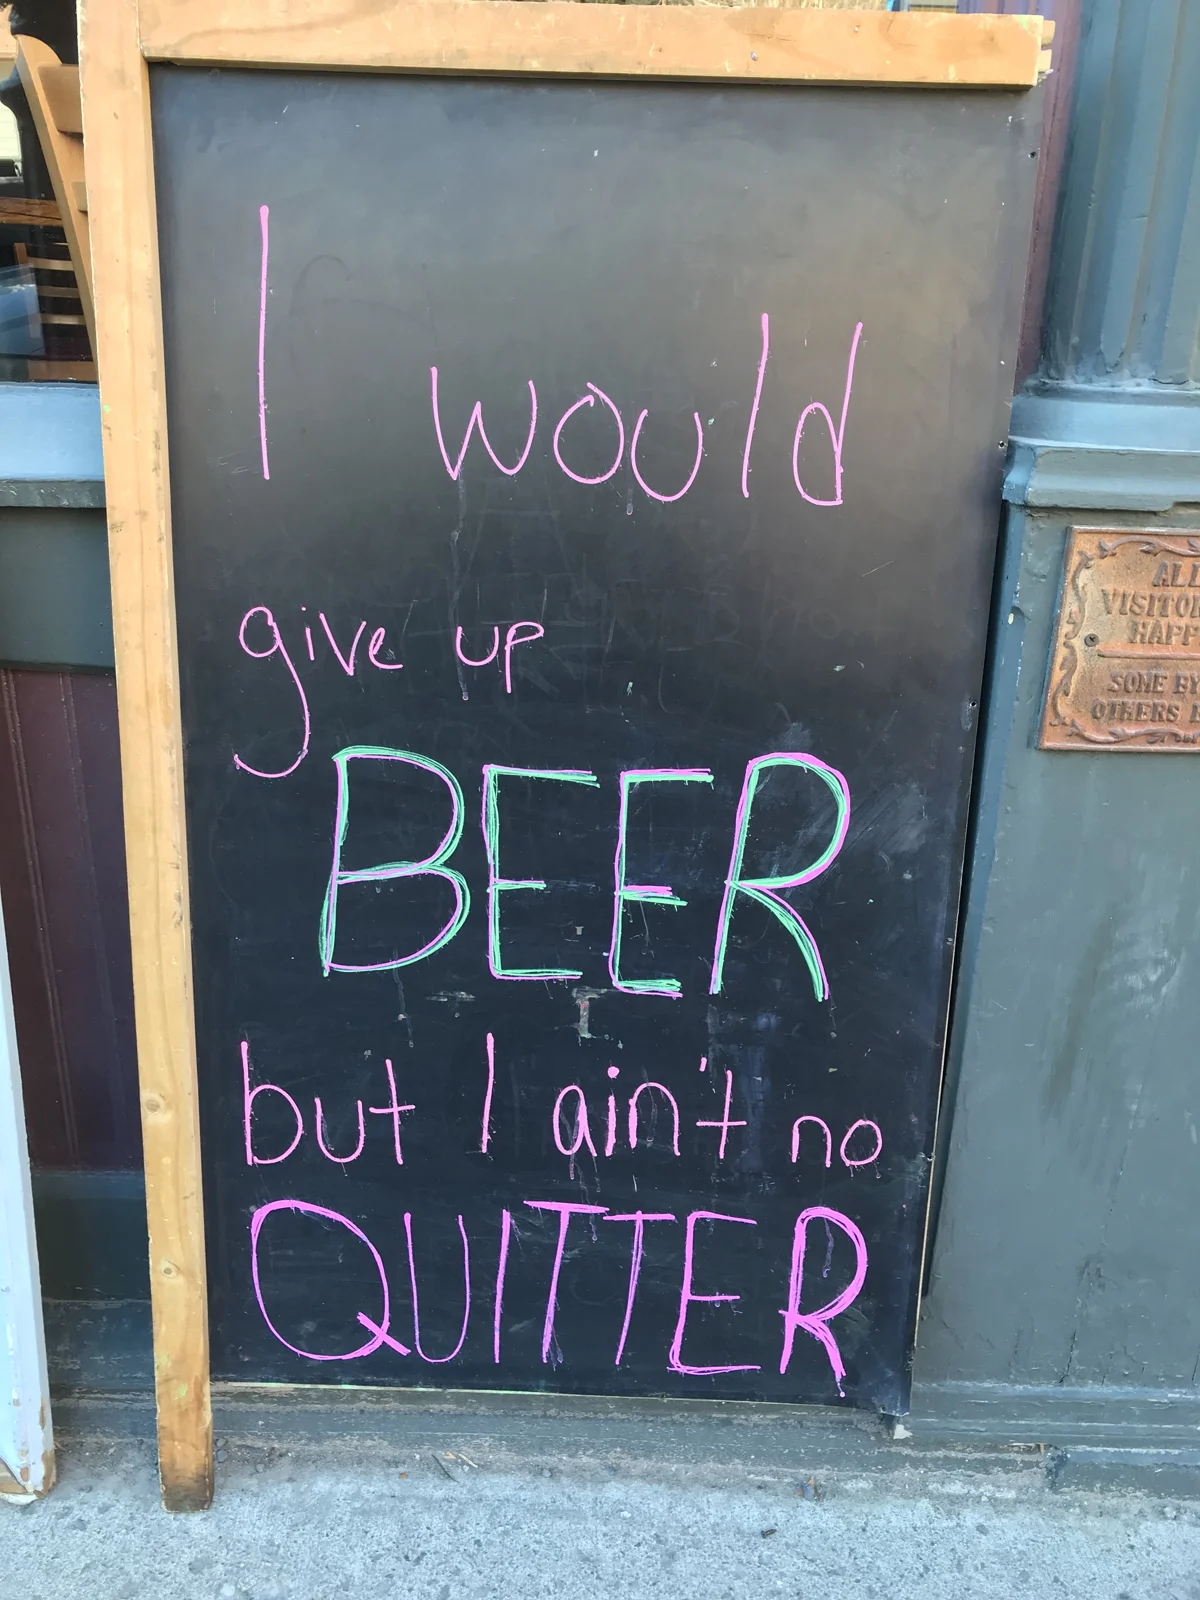 I would
give up
BEER
but I ain't no
QUITTER
ALL
HAPP
SOME BY
OTHERS